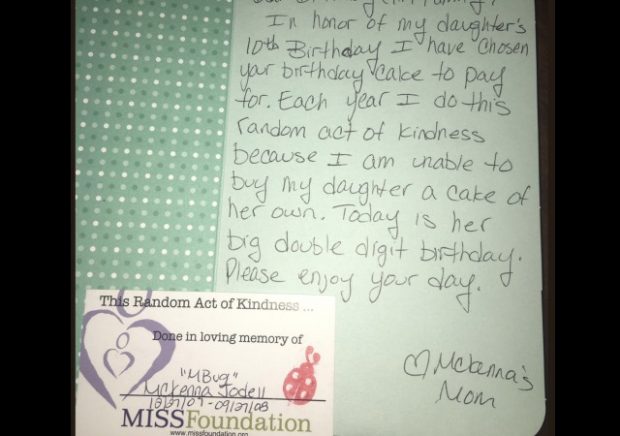 In honor of my daughter's
10th Birthday I have chosen
your birthday cake to pay
for. Each year I do this
random act of kindness
because I am unable to
buy my daughter a cake of
her own. Today is her
big double digit birthday.
Please enjoy your day.
♡ McKenna's
Mom
This Random Act of Kindness ...
Done in loving memory of
"MBug"
McKenna Jodell
12/27/07 - 09/27/08
MISSFoundation
www.missfoundation.org